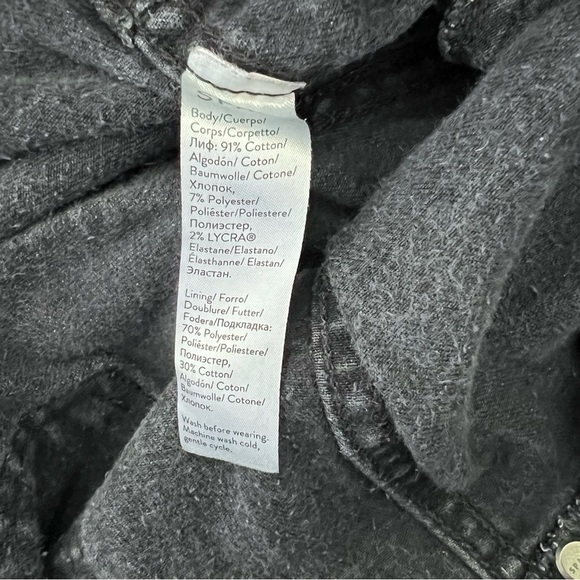 Body/Cuerpo/
Corps/Corpetto/
Лиф: 91% Cotton/
Algodón/ Coton/
Baumwolle/ Cotone/
Хлопок,
7% Polyester/
Poliéster/Poliestere/
Полиэстер,
2% LYCRA®
Elastane/Elastano/
Élasthanne/ Elastan/
Эластан.
Lining/ Forro/
Doublure/ Futter/
Fodera/Подкладка:
70% Polyester/
Poliéster/Poliestere/
Полиэстер,
30% Cotton/
Algodón/ Coton/
Baumwolle/ Cotone/
Хлопок.
Wash before wearing.
Machine wash cold,
gentle cycle.